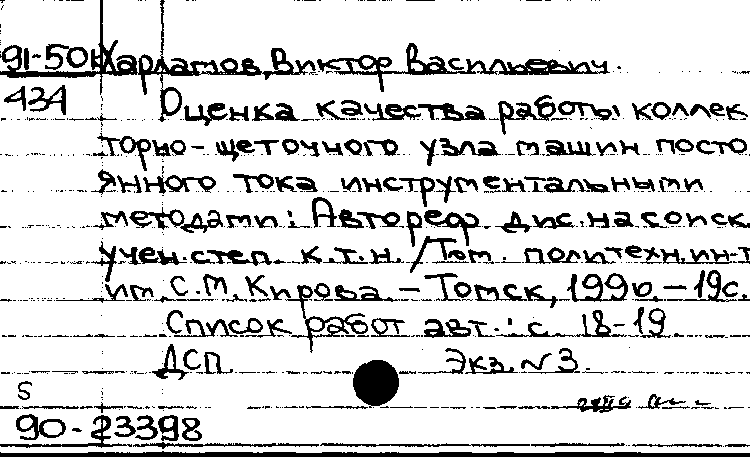 91-50к Харламов, Виктор Васильевич.
434 Оценка качества работы коллек
торно-щеточного узла машин посто
янного тока инструментальными
методами: Автореф. дис. на соиск.
учен. степ. к.т.н. /Том. политехн. ин-т
им. С.М. Кирова. – Томск, 1990. – 19с.
Список работ авт.: с. 18-19.
ДСП. Экз. N 3.
S
90-23398